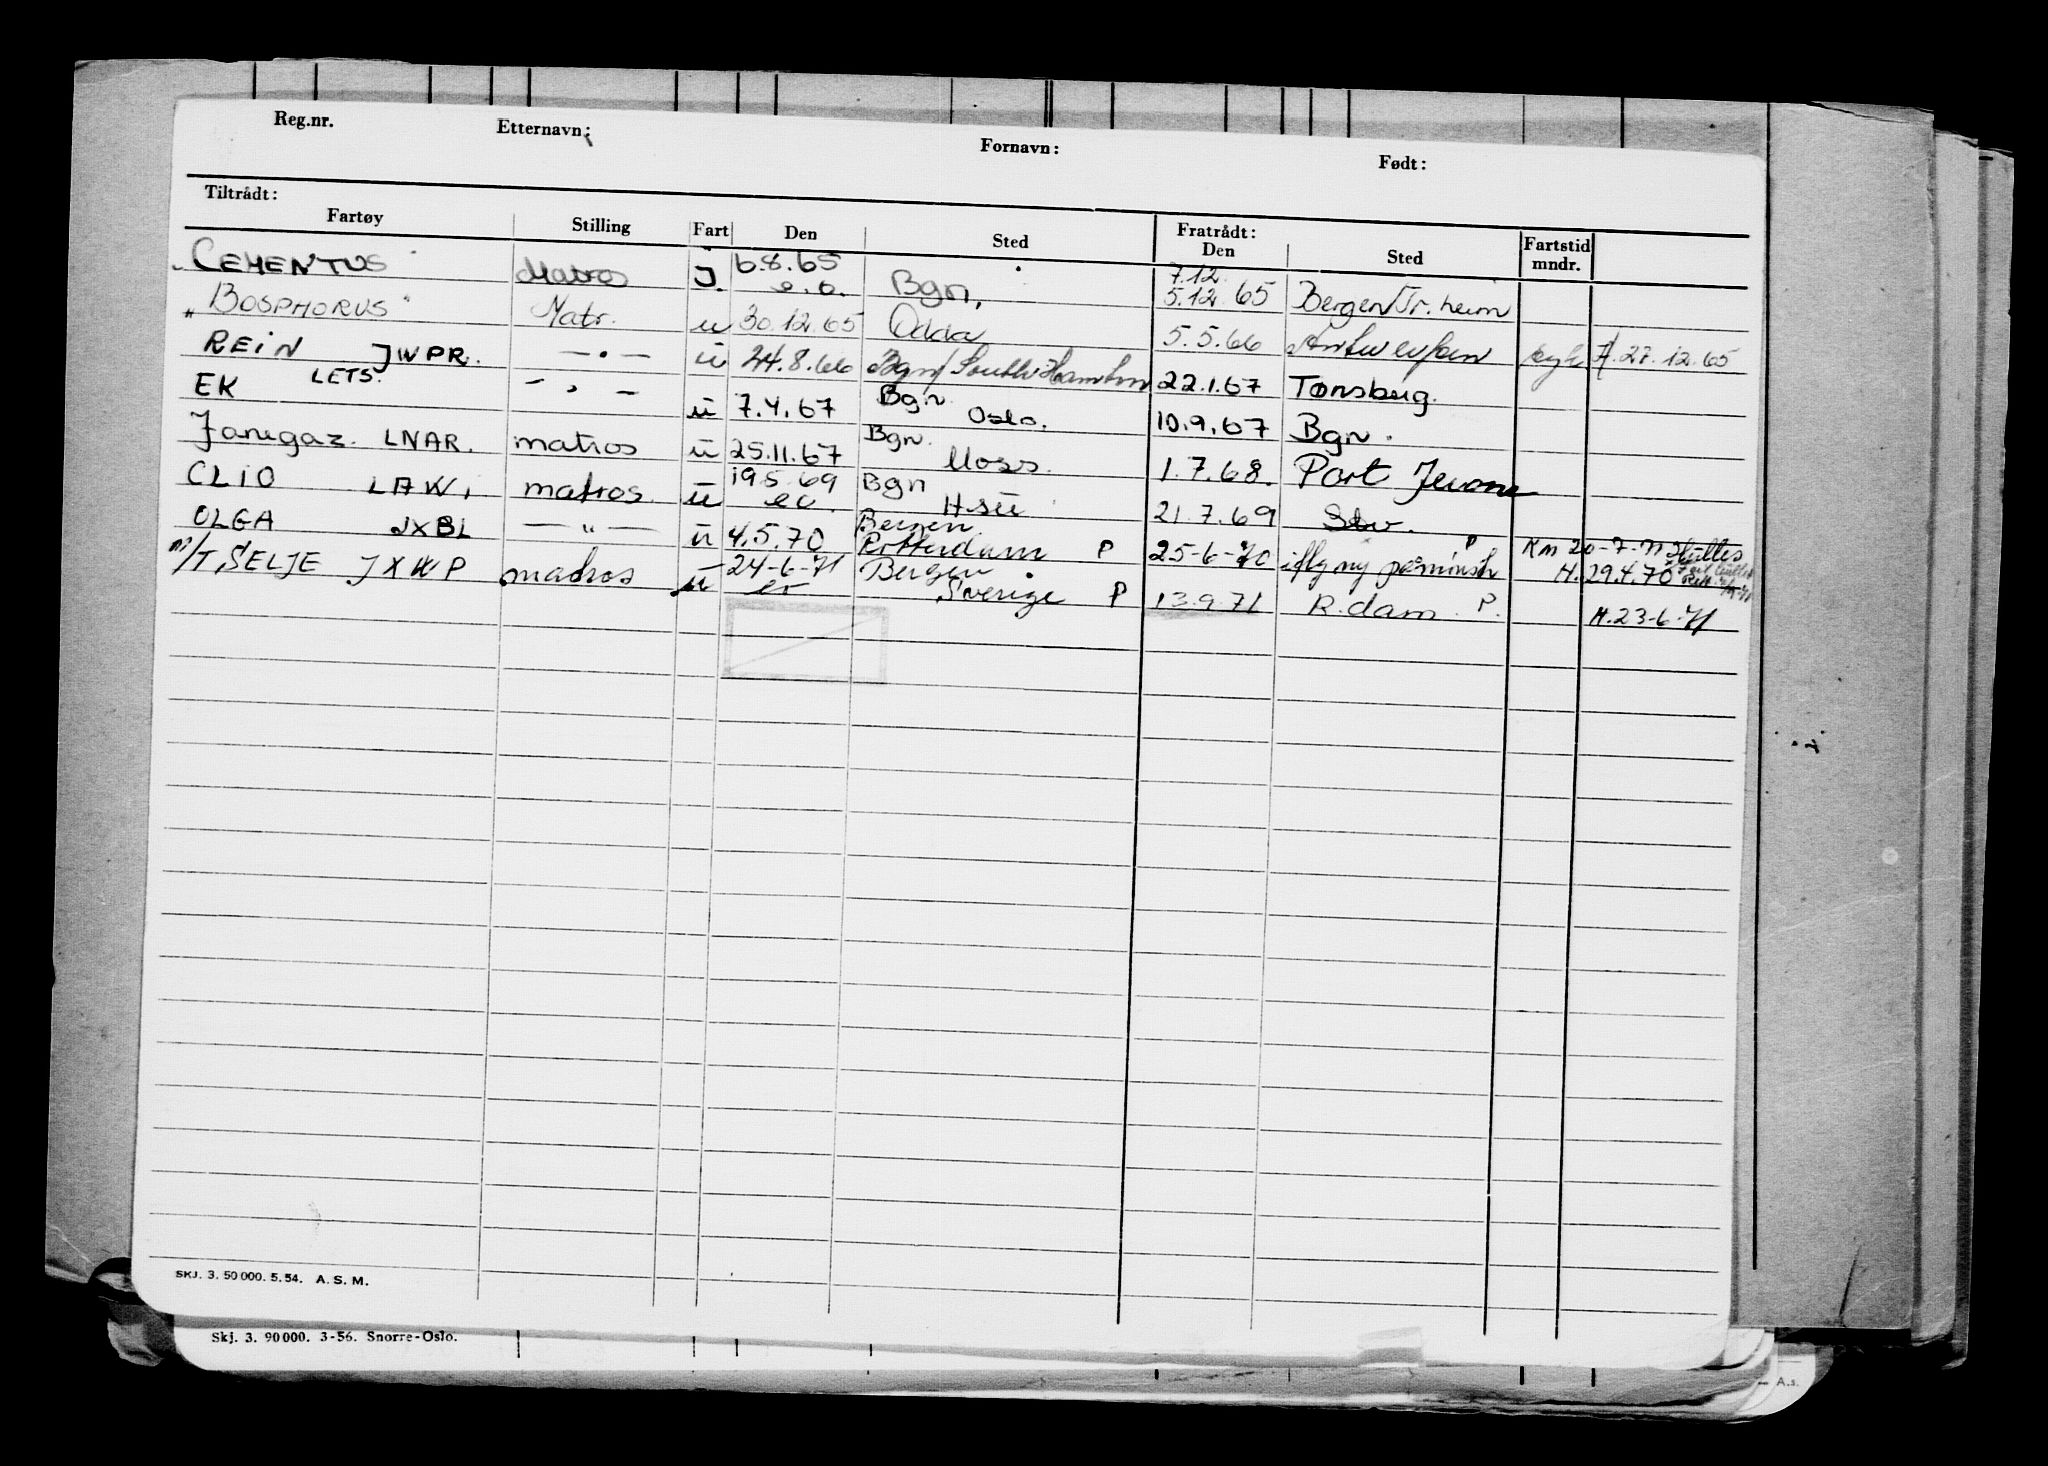 Reg.nr. Etternavn: Fornavn: Født:
Tiltrådt: Fratrådt:
Fartøy Stilling Fart Den Sted Den Sted Fartstid mndr.
"CEMENTUS" Matros J. 6.8.65 e.o. Bgn, 7.12. 5.12.65 Bergen/Tr.heim
"BOSPHORUS" Matr. u 30.12.65 Odda 5.5.66 Antwerpen 27.12.65
REIN JWPR. —〃— u 24.8.66 Bgn/SouthHamton 22.1.67 Tønsberg.
EK LETS. —〃— u 7.4.67 Bgn. Oslo. 10.9.67 Bgn.
Janegaz. LNAR. matros u 25.11.67 Bgn. Moss. 1.7.68. Port Jerome
CLIO LAWI matros u 19.5.69 eo. Bgn H.sü 21.7.69 Stv.
OLGA JXBL —〃— u 4.5.70 Bergen Rotterdam P 25-6-70 iflg ny påmønstr P Km 20-7-71 H. 29.4.70
M/T, SELJE JXWP matros u 24-6-71 Bergen Sverige P 13.9.71 R.dam. P. H. 23-6-71
SKJ. 3. 50 000. 5. 54. A. S. M.
Skj. 3. 90 000. 3-56. Snorre-Oslo.
A.s.